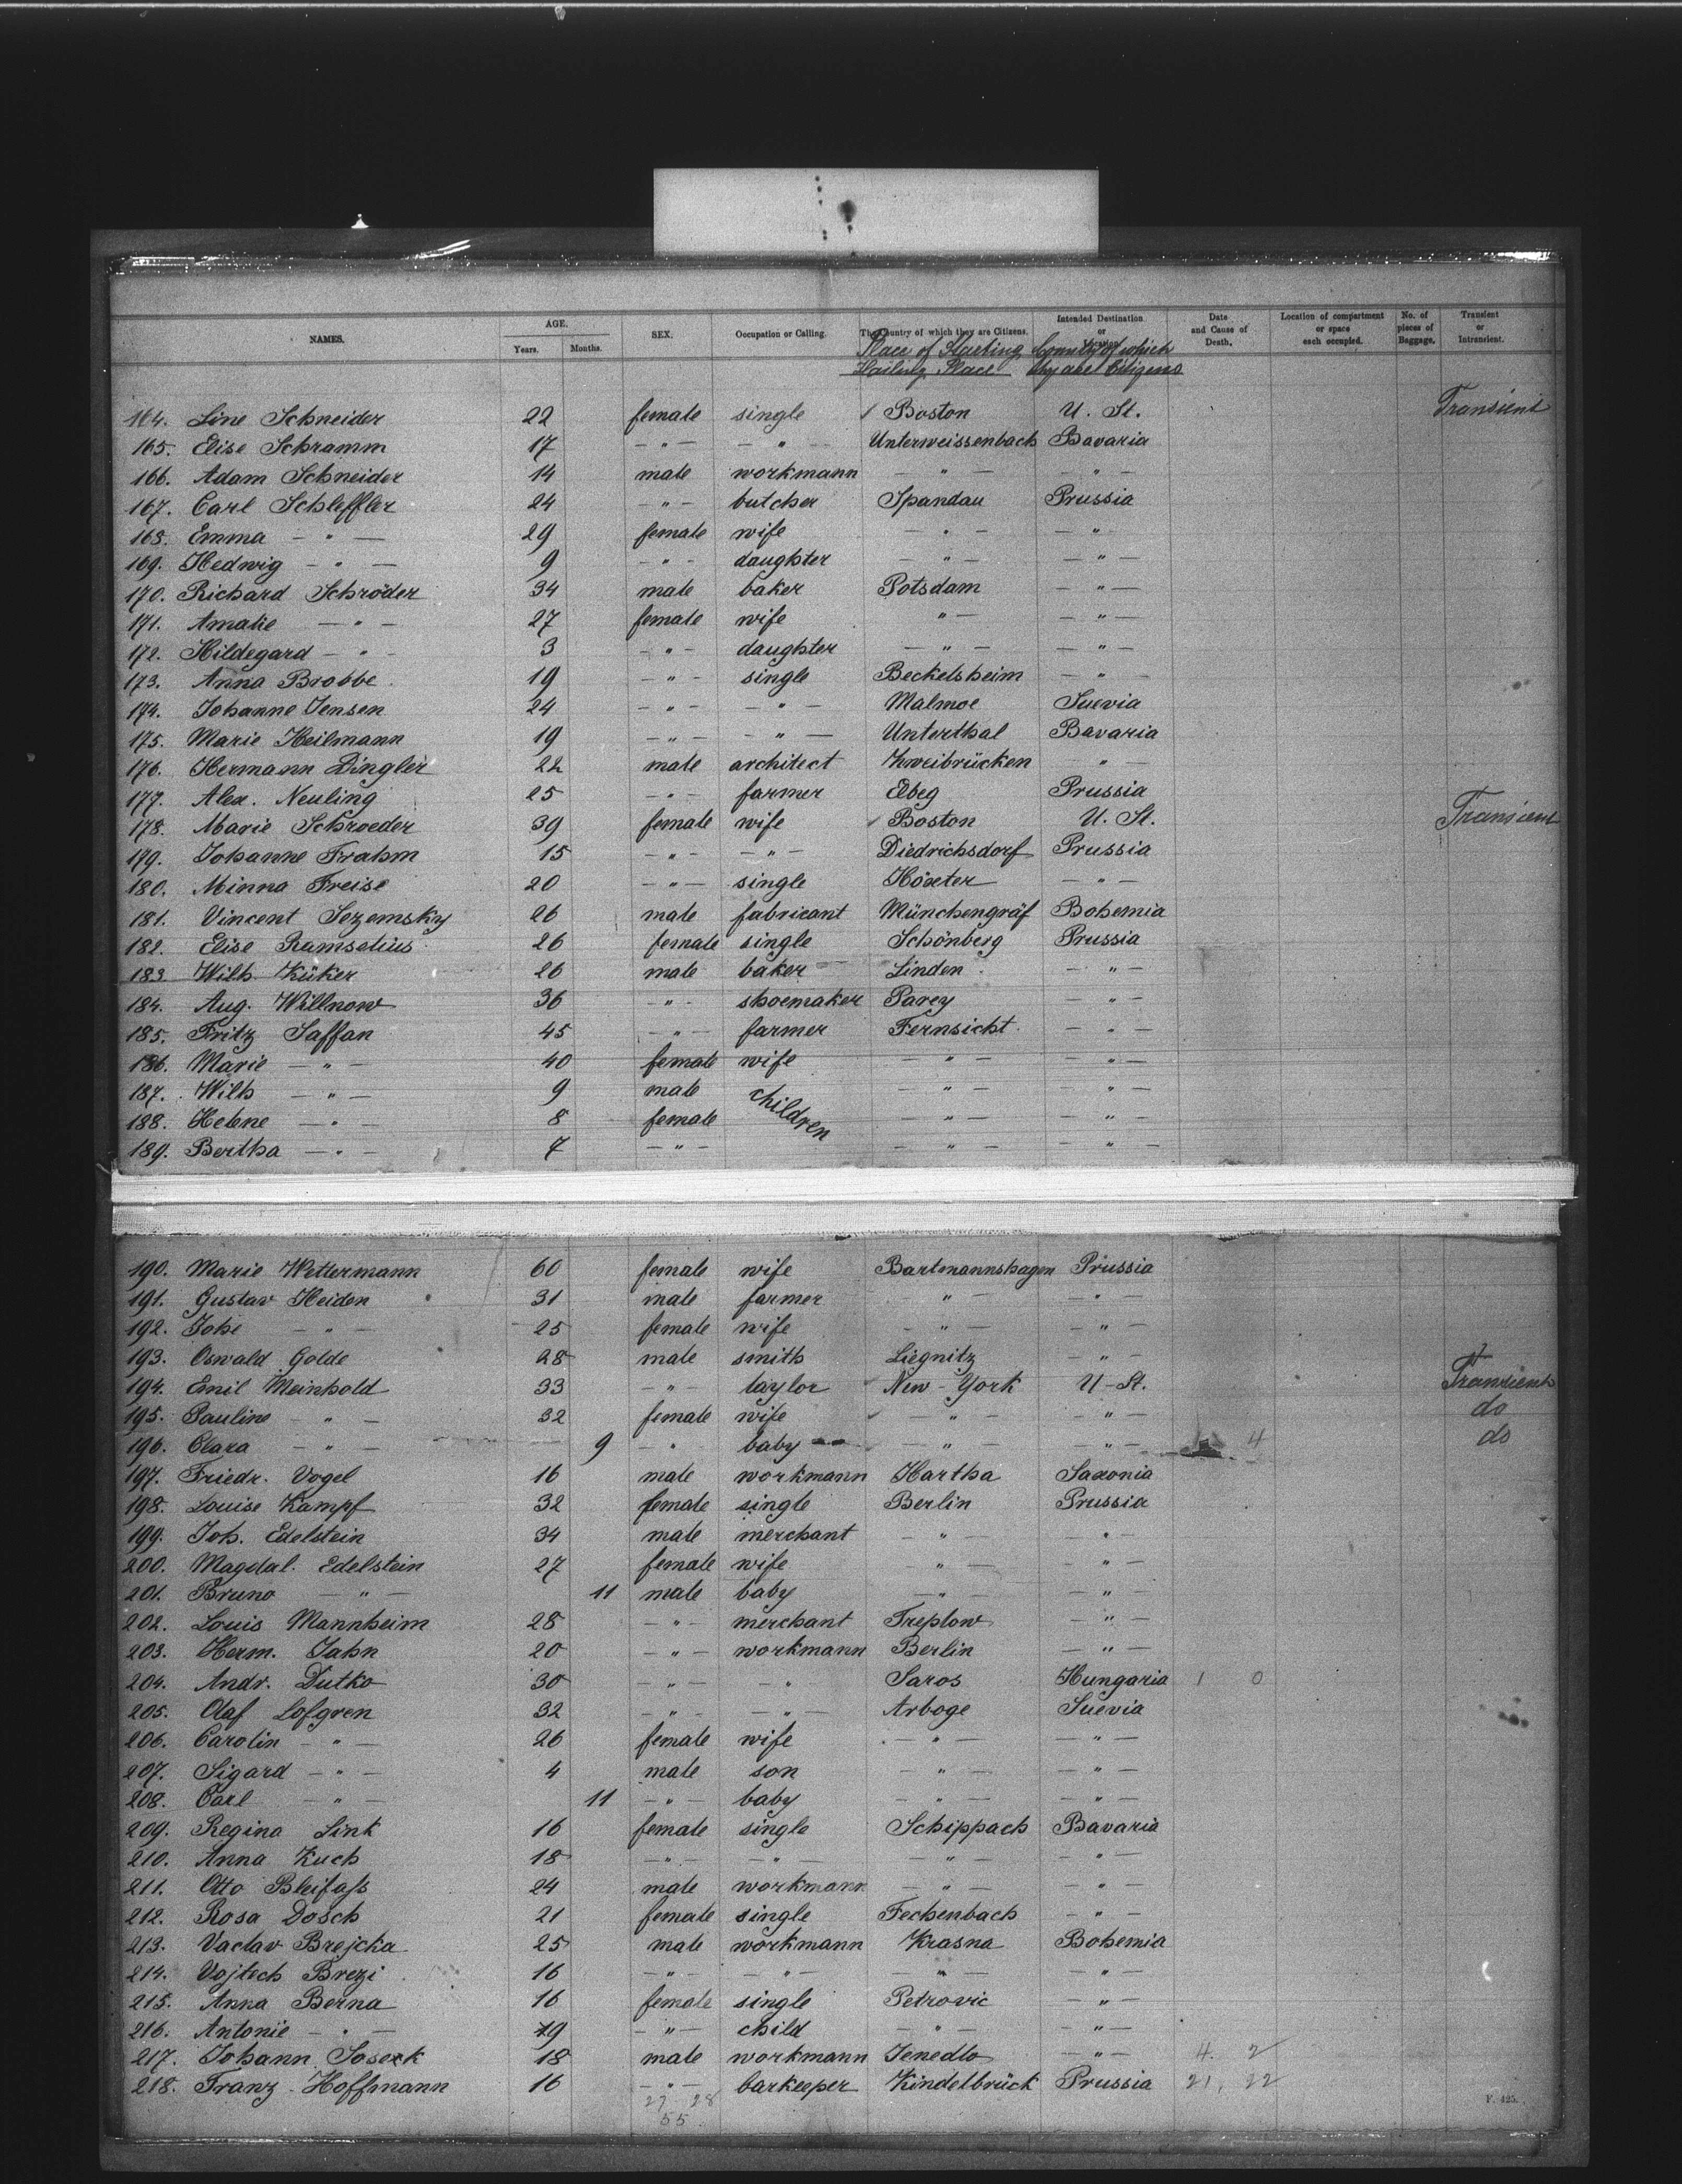 NAMES. AGE. Years. Months. SEX. Occupation or Calling. The Country of which they are Citizens. Intended Destination or Date and Cause of Death. Location of compartment or space each occupied. No. of pieces of Baggage. Transient or Intransient.
Place of Starting Country of which
Hailing Place they are Citizens
164. Line Schneider 22 female single Boston U. St. Transient
165. Elise Schramm 17 -"- -"- Unterweissenbach Bavaria
166. Adam Schneider 14 male workmann -"- -"-
167. Carl Schleffler 24 -"- butcher Spandau Prussia
168. Emma -"- 29 female wife -"- -"-
169. Hedwig -"- 9 -"- daughter -"- -"-
170. Richard Schröder 34 male baker Potsdam -"-
171. Amalie -"- 27 female wife "- -"-
172. Hildegard -"- 3 -"- daughter -"- -"-
173. Anna Brobbe 19 -"- single Beckelsheim -"-
174. Johanne Jensen 24 -"- -"- Malmoe Suevia
175. Marie Heilmann 19 -"- -"- Unterthal Bavaria
176. Hermann Dingler 22 male architect Zweibrücken "-
177. Alex. Neuling 25 -"- farmer Elbeg Prussia
178. Marie Schroeder 39 female wife Boston U. St. Transient
179. Johanne Frahm 15 -"- -"- Diedrichsdorf Prussia
180. Minna Freise 20 -"- single Höxter -"-
181. Vincent Sezemsky 26 male fabricant Münchengräf Bohemia
182. Elise Ramsetius 26 female single Schönberg Prussia
183 Wilh. Küker 26 male baker Linden -"-
184. Aug. Willnow 36 -"- shoemaker Parey -"-
185. Fritz Saffan 45 -"- farmer Fernsicht -"-
186. Marie -"- 40 female wife "- -"-
187. Wilh -"- 9 male children -"- -"-
188. Helene -"- 8 female "- -"-
189. Bertha -"- 7 -"- "- -"-
190. Marie Wettermann 60 female wife Bartmannshagen Prussia
191. Gustav Heiden 31 male farmer "- -"-
192. Johe -"- 25 female wife -"- -"-
193. Oswald Golde 28 male smith Liegnitz -"-
194. Emil Meinhold 33 -"- taylor New-York U-St. Transient
195. Pauline -"- 32 female wife "- -"- do
196. Clara -"- 9 -"- baby "- -"- 4 do
197. Friedr. Vogel 16 male workmann Hartha Saxonia
198. Louise Kampf 32 female single Berlin Prussia
199. Joh. Edelstein 34 male merchant -"- "-
200. Magdal. Edelstein 27 female wife "- -"-
201. Bruno -"- 11 male baby -"- -"-
202. Louis Mannheim 28 -"- merchant Treplow -"-
203. Herm. Jahn 20 -"- workmann Berlin -"-
204. Andr. Dutko 30 -"- -"- Saros Hungaria 1 0
205. Olaf Lofgren 32 -"- -"- Arboge Suevia
206. Carolin -"- 26 female wife -"- -"-
207. Sigard -"- 4 male son -"- -"-
208. Carl -"- 11 -"- baby -"- -"-
209. Regina Link 16 female single Schippach Bavaria
210. Anna Kuch 18 -"- -"- -"- -"-
211. Otto Bleifass 24 male workmann -"- -"-
212. Rosa Dosch 21 female single Fechenbach -"-
213. Vaclav Brejcka 25 male workmann Krasna Bohemia
214. Vojtech Brezi 16 -"- -"- -"- -"-
215. Anna Berna 16 female single Petrovic -"-
216. Antonie -"- 19 -"- child -"- -"-
217. Johann 18 male workmann Jenedlo -"- 4. 2
218. Franz Hoffmann 16 -"- barkeeper Kindelbrück Prussia 21, 22
27 28
55
F. 425.